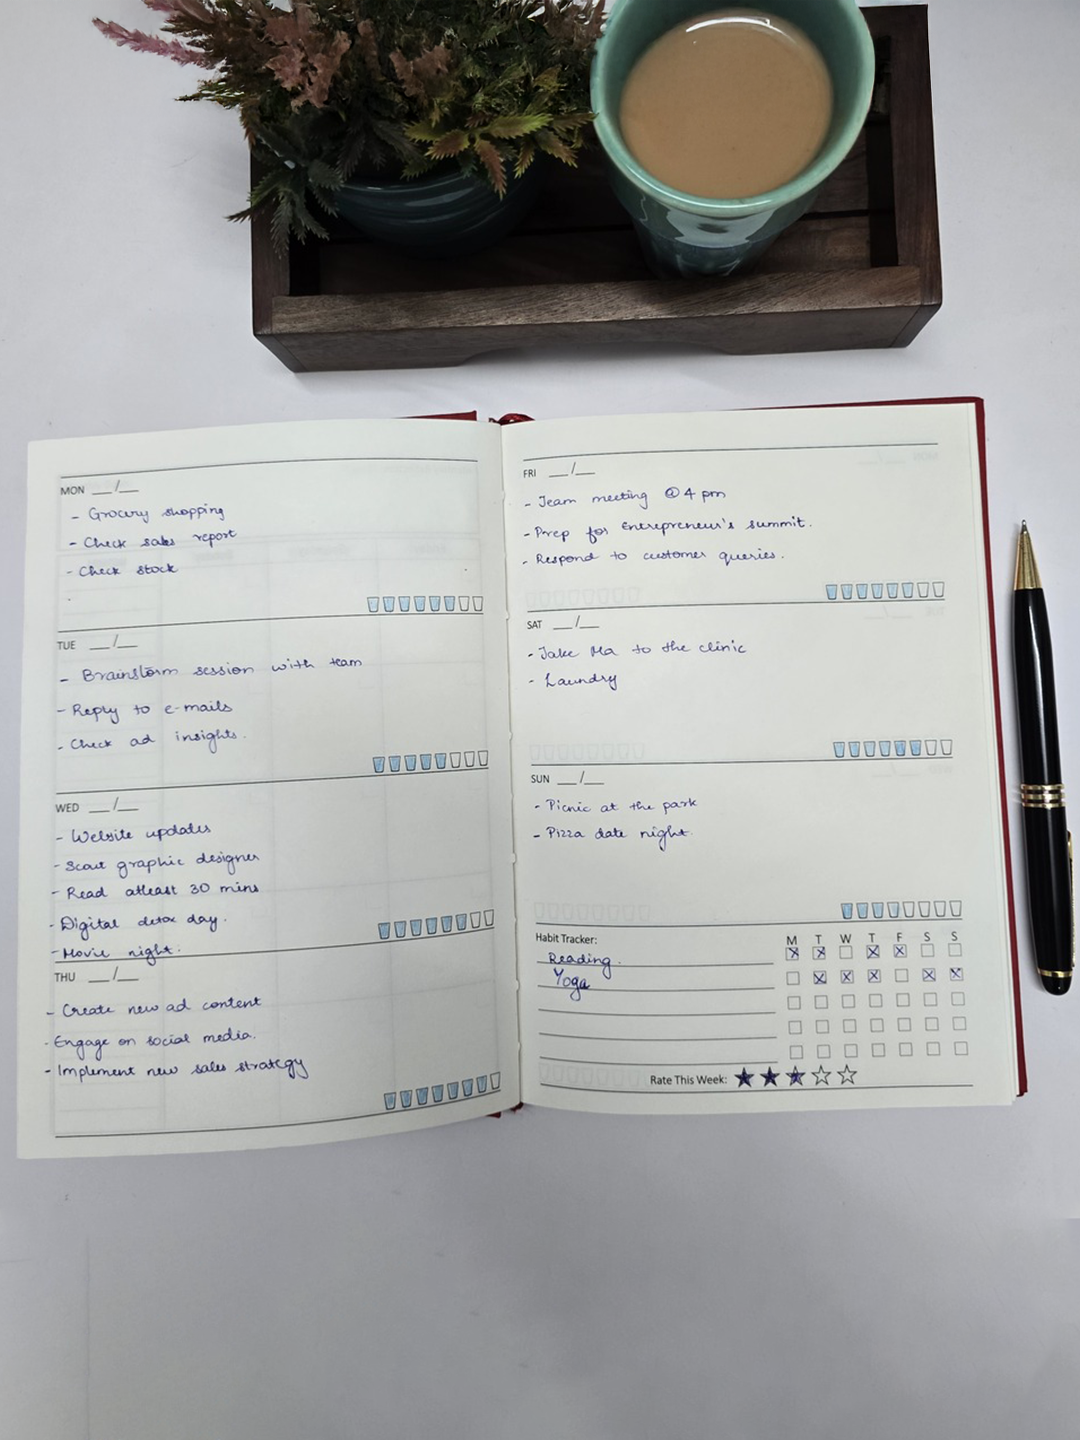 MON __/__
- Grocery shopping
- Check sales report
- Check stock
TUE __/__
- Brainstorm session with team
- Reply to e-mails
- Check ad insights.
WED __/__
- Website updates
- Scout graphic designer
- Read atleast 30 mins
- Digital detox day.
- Movie night.
THU __/__
- Create new ad content
- Engage on social media.
- Implement new sales strategy
FRI __/__
- Team meeting @ 4 pm
- Prep for Entrepreneur's summit.
- Respond to customer queries.
SAT __/__
- Take Ma to the clinic
- Laundry
SUN __/__
- Picnic at the park
- Pizza date night.
Habit Tracker: M T W T F S S
Reading.
Yoga
Rate This Week: